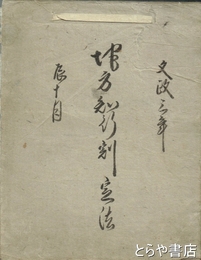 文政三年
地方知行割定法
辰十月
とらや書店